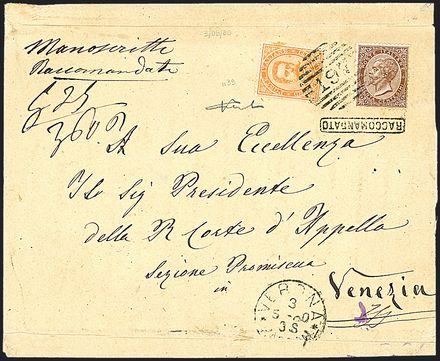 3/05/80
Manoscritti
Raccomandate
n39
RACCOMANDATO
A Sua Eccellenza
Ilo Sig Presidente
della R Corte d'Appello
Sezione Promiscua
in
Venezia
VERONA
3
5-80
3S